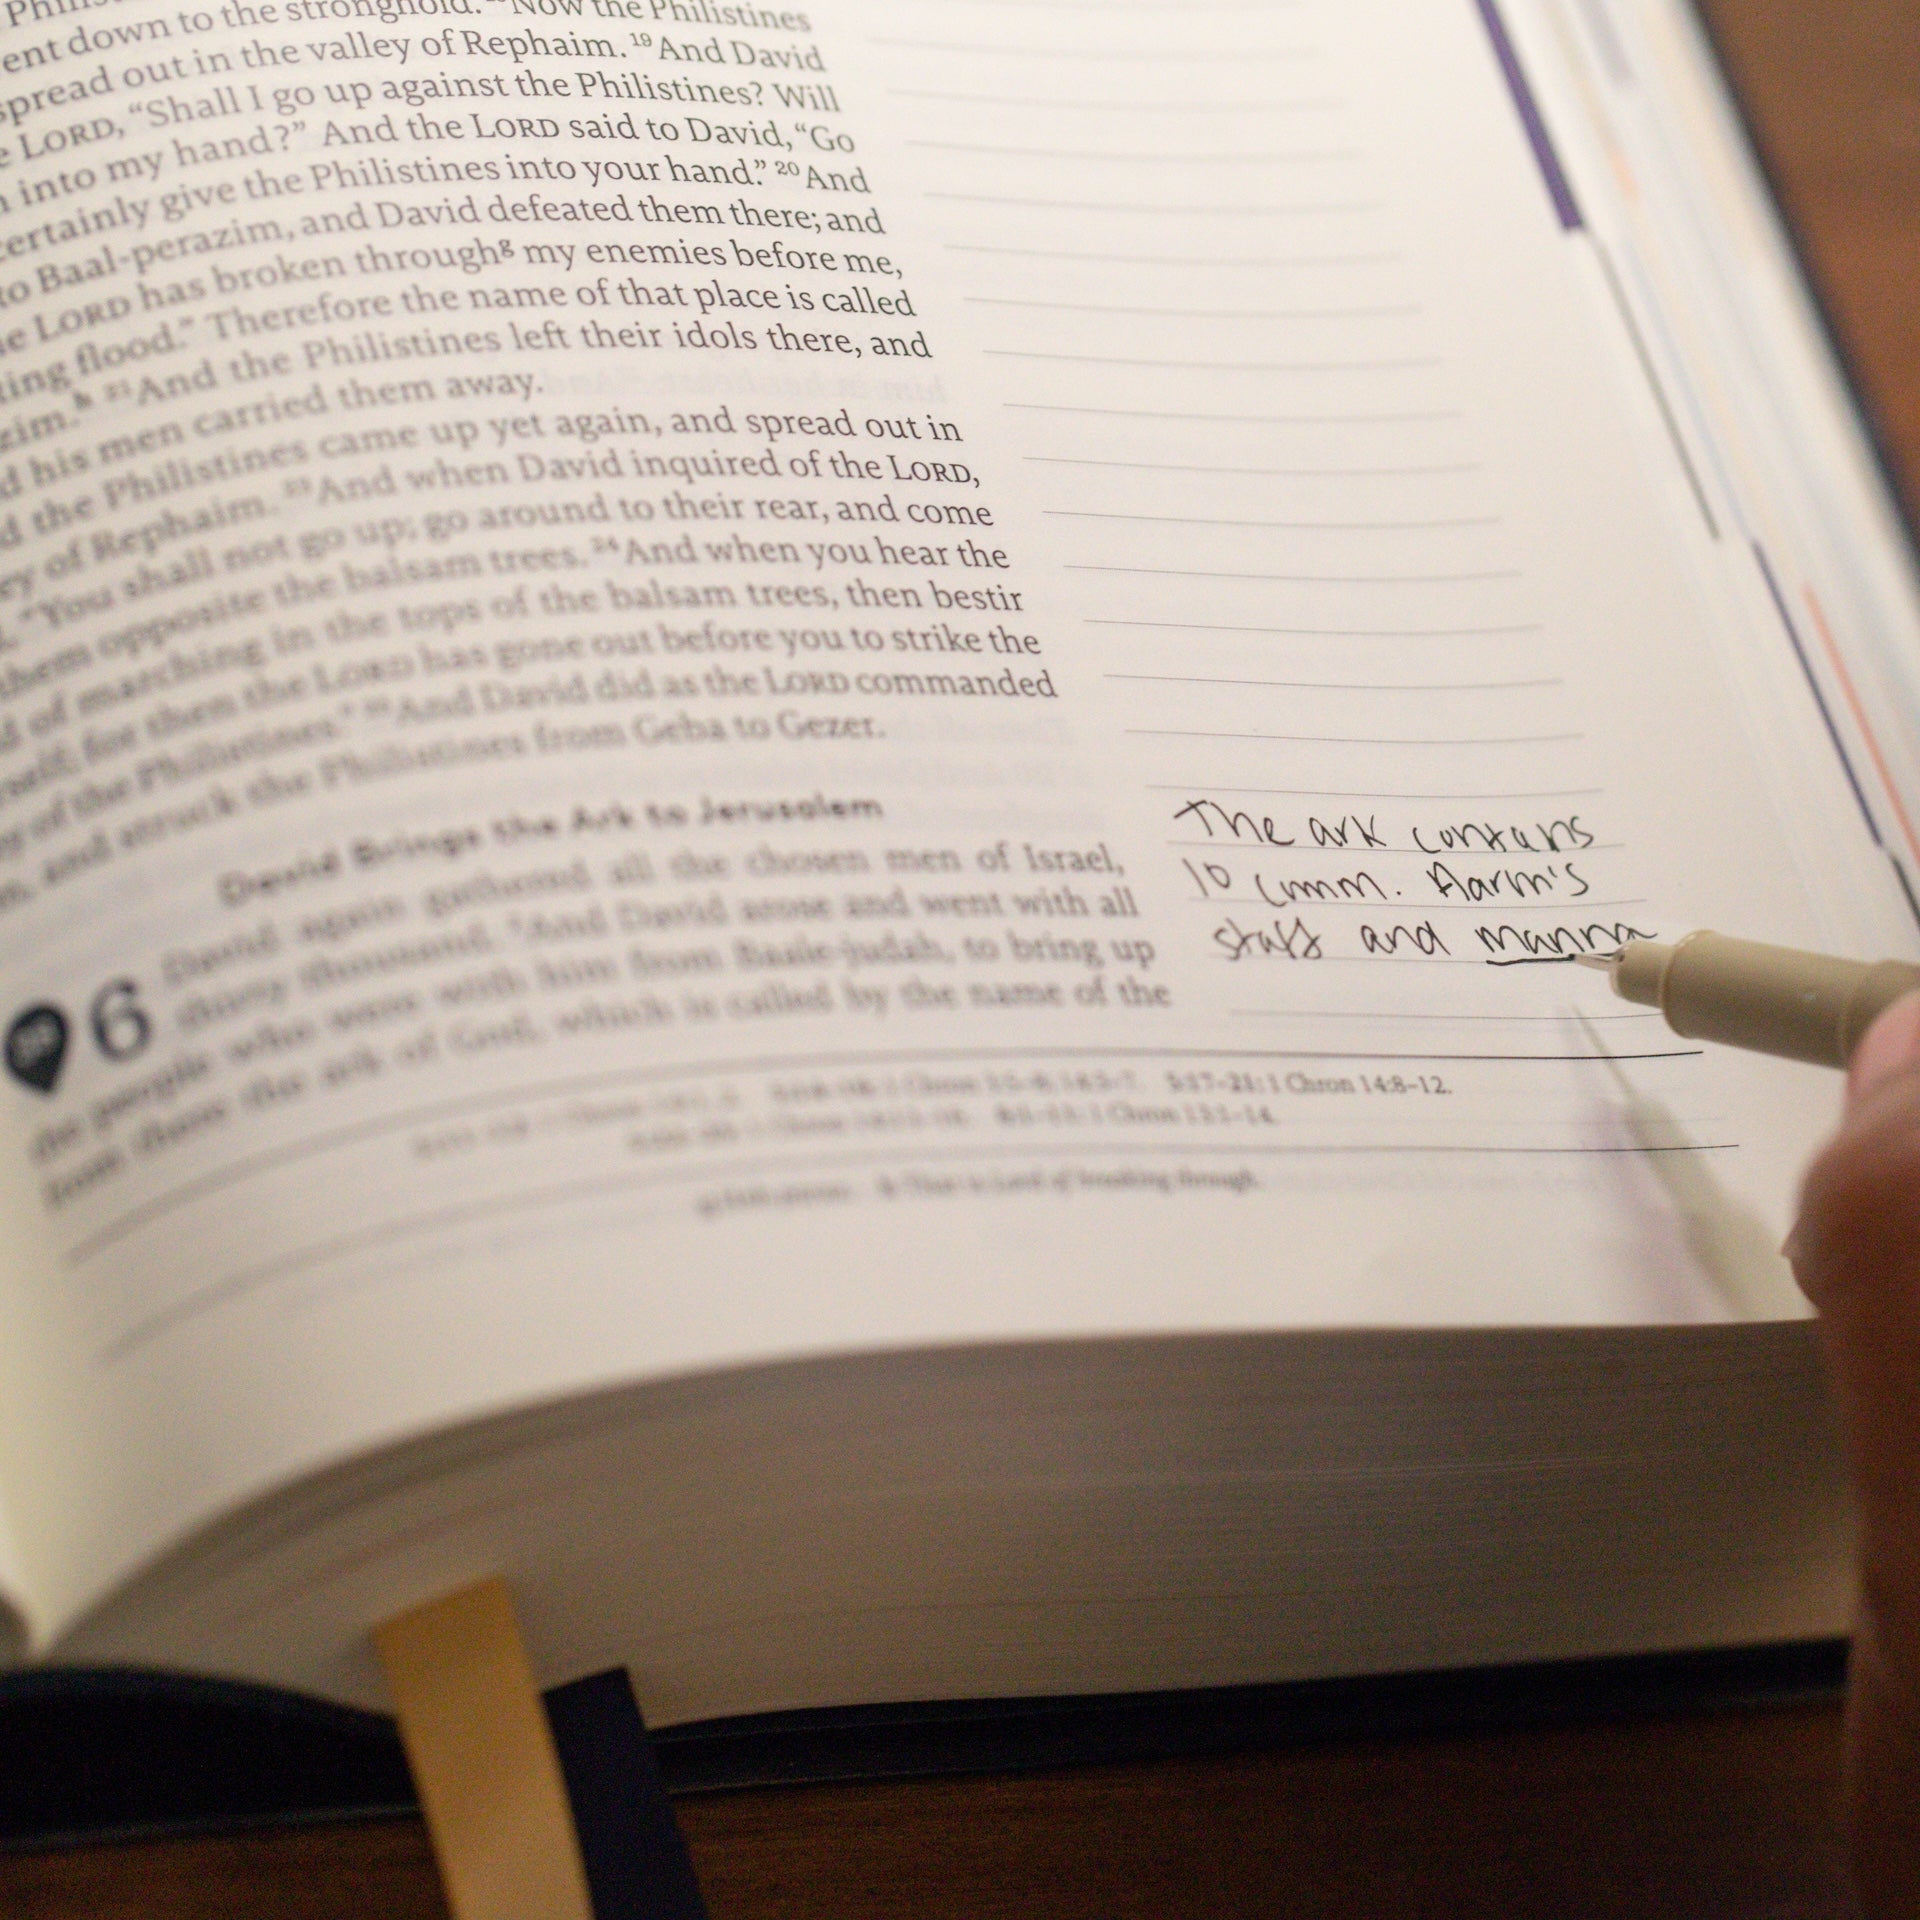 ent down to the stronghold. Now the Philistines
spread out in the valley of Rephaim. 19 And David
e LORD, “Shall I go up against the Philistines? Will
into my hand?” And the LORD said to David, “Go
certainly give the Philistines into your hand.” 20 And
to Baal-perazim, and David defeated them there; and
he LORD has broken through g my enemies before me,
flood.” Therefore the name of that place is called
zim. h 21 And the Philistines left their idols there, and
d his men carried them away.
d the Philistines came up yet again, and spread out in
ey of Rephaim. 23 And when David inquired of the LORD,
“You shall not go up; go around to their rear, and come
them opposite the balsam trees. 24 And when you hear the
d of marching in the tops of the balsam trees, then bestir
for them the LORD has gone out before you to strike the
of the Philistines.” 25 And David did as the LORD commanded
and struck the Philistines from Geba to Gezer.
David Brings the Ark to Jerusalem
6 David again gathered all the chosen men of Israel,
thirty thousand. And David arose and went with all
the people who were with him from Baale-judah, to bring up
from there the ark of God, which is called by the name of the
The ark contains
10 comm. Aaron's
staff and manna
5:17–21: 1 Chron 14:8–12.
1 Chron 13:1–14.
h That is Lord of breaking through.